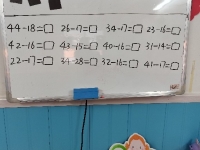 44-18=□ 26-17=□ 34-17=□ 23-16=□
42-16=□ 43-15=□ 40-16=□ 31-14=□
22-17=□ 34-28=□ 32-16=□ 41-17=□